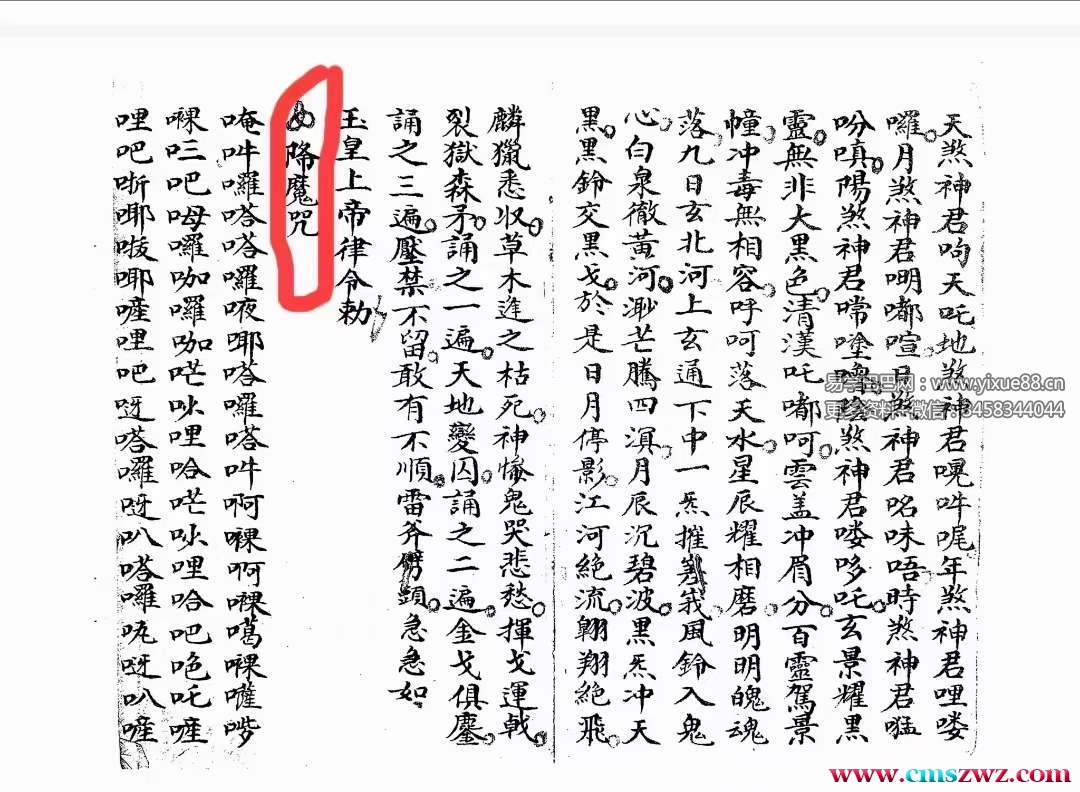 天煞神君呴天吒地煞神君㖠吽呢年煞神君哩喽
囉月煞神君嘲嘟喧日煞神君㕰味唔時煞神君
吩嗔陽煞神君嘗塗陰煞神君喽哆吒玄景耀黑
靈無非大黑色清漢吒嘟呵雲盖冲眉分百靈駕景
幢冲毒無相容呼呵落天水星辰耀相磨明明魄魂
落九日玄北河上玄通下中一炁摧我風鈴入鬼
心白泉徹黃河渺芒騰四溟月辰沉碧波黑炁冲天
黑黑鈴交黑戈於是日月停影江河絕流翱翔絕飛
麟獵悉収草木進之枯死神慘鬼哭悲愁揮戈運戟
裂獄森矛誦之一遍天地變囚誦之二遍金戈俱鏖
誦之三遍壓禁不留敢有不順雷斧劈頭急急如
玉皇上帝律令勅
降魔咒
唵吽囉嗒嗒囉吔耶嗒囉嗒吽啊啊噶嚾
吧囉咖囉咖哩哈哩哈吧吒
哩吧耶耶哩吧呀嗒囉呀叭嗒囉呀叭
易学巴巴网：www.yixue88.cn
更多资料+微信:13458344044
www.cmszwz.com